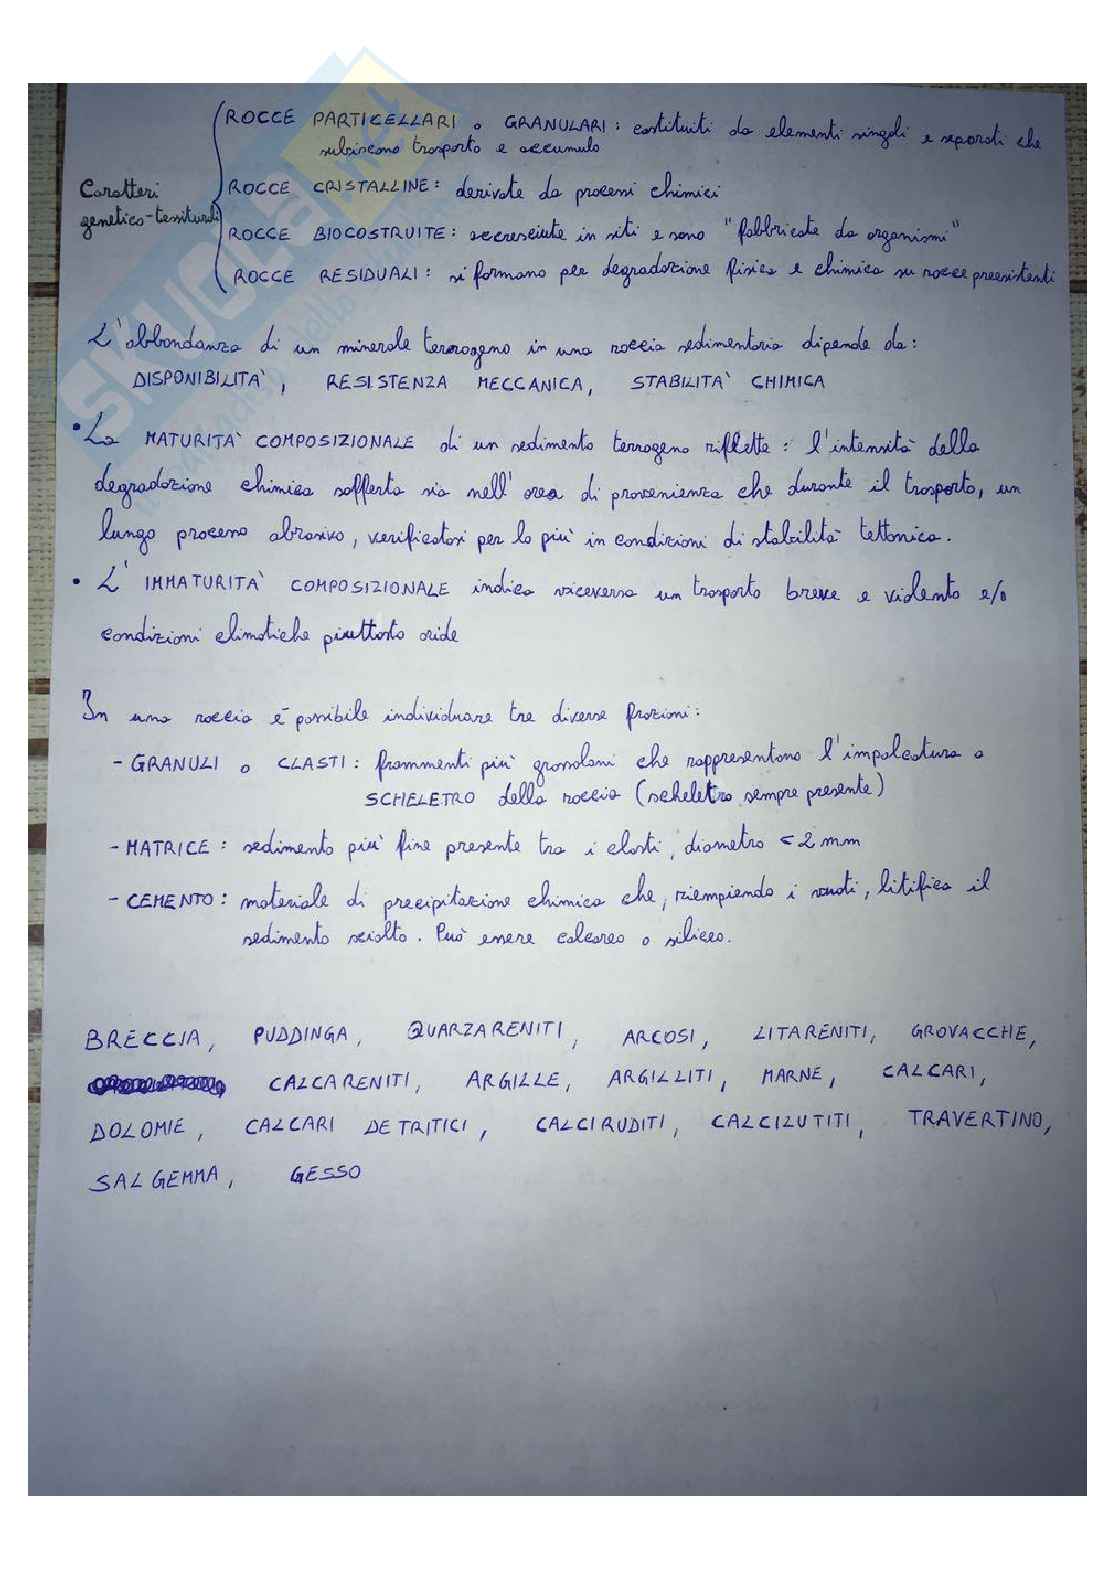 ROCCE PARTICELLARI o GRANULARI: costituiti da elementi singoli e separati che
subiscono trasporto e accumulo
Caratteri
genetico-tessiturali
ROCCE CRISTALLINE: derivate da processi chimici
ROCCE BIOCOSTRUITE: accresciute in siti e sono "fabbricate da organismi"
ROCCE RESIDUALI: si formano per degradazione fisica e chimica su rocce preesistenti
L'abbondanza di un minerale terrogeno in una roccia sedimentaria dipende da:
DISPONIBILITA', RESISTENZA MECCANICA, STABILITA' CHIMICA
•La MATURITA' COMPOSIZIONALE di un sedimento terrogeno riflette: l'intensità della
degradazione chimica sofferta sia nell'area di provenienza che durante il trasporto, un
lungo processo abrasivo, verificatosi per lo più in condizioni di stabilità tettonica.
• L'IMMATURITA' COMPOSIZIONALE indica viceversa un trasporto breve e violento e/o
condizioni climatiche piuttosto aride
In una roccia è possibile individuare tre diverse frazioni:
- GRANULI o CLASTI: frammenti più grossolani che rappresentano l'impalcatura o
SCHELETRO della roccia (scheletro sempre presente)
- MATRICE: sedimento più fine presente tra i clasti, diametro < 2 mm
- CEMENTO: materiale di precipitazione chimica che, riempiendo i vuoti, litifica il
sedimento sciolto. Può essere calcareo o siliceo.
BRECCIA, PUDDINGA, QUARZARENITI, ARCOSI, LITARENITI, GROVACCHE,
CALCARENITI, ARGILLE, ARGILLITI, MARNE, CALCARI,
DOLOMIE, CALCARI DETRITICI, CALCIRUDITI, CALCILUTITI, TRAVERTINO,
SALGEMMA, GESSO
SKUOLA.net